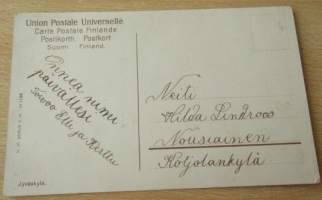 Union Postale Universelle.
Carte Postale Finlande
Postikortti. Postkort
Suomi. Finland.
Onnea nimi
päivällesi
toivoo Elli ja Hertta
Neiti
Hilda Lindroos
Nousiainen
Koljolankylä
Jyväskylä.